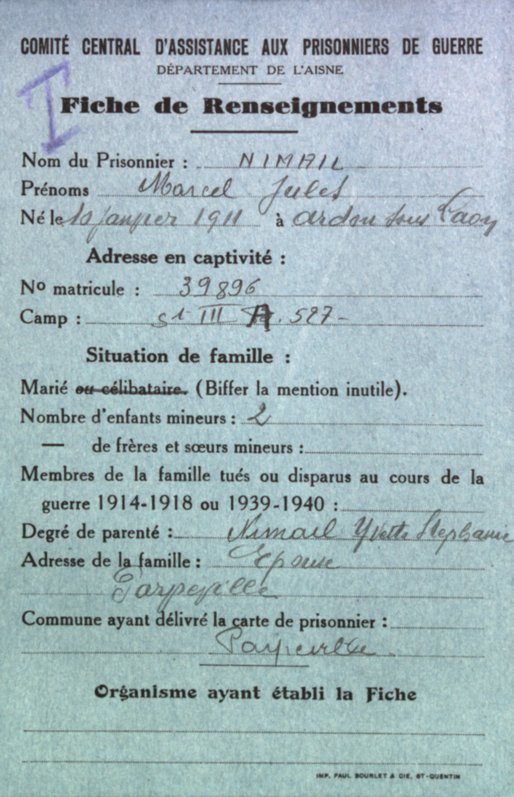 COMITÉ CENTRAL D'ASSISTANCE AUX PRISONNIERS DE GUERRE
DÉPARTEMENT DE L'AISNE
I
Fiche de Renseignements
Nom du Prisonnier : NIMAIL
Prénoms Marcel Jules
Né le 10 janvier 1911 à ardon sous Laon
Adresse en captivité :
No matricule : 39896
Camp : St III A. 527-
Situation de famille :
Marié ou célibataire. (Biffer la mention inutile).
Nombre d'enfants mineurs : 2
— de frères et sœurs mineurs :
Membres de la famille tués ou disparus au cours de la
guerre 1914-1918 ou 1939-1940 :
Degré de parenté : Nimail Yvette Stephanie
Adresse de la famille : Epouse
Parpeville
Commune ayant délivré la carte de prisonnier :
Parpeville
Organisme ayant établi la Fiche
IMP. PAUL BOURLET & CIE, ST-QUENTIN